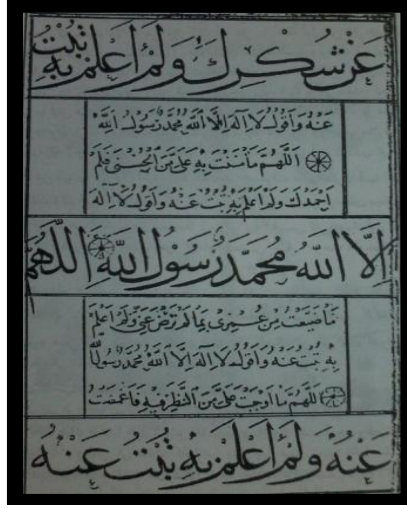 عَنْ شُكْرِكَ وَلَمْ اَعْلَمْ بِهِ تُبْتُ
عَنْهُ وَاَقُولُ لَا اِلٰهَ اِلَّا اللّٰهُ مُحَمَّدٌ رَسُولُ اللّٰهِ
اَللّٰهُمَّ مَا مَنَنْتَ بِهِ عَلَىَّ مِنَ الْحُسْنٰى فَلَمْ
اَحْمَدْكَ وَلَمْ اَعْلَمْ بِهِ تُبْتُ عَنْهُ وَاَقُولُ لَا اِلٰهَ
اِلَّا اللّٰهُ مُحَمَّدٌ رَسُولُ اللّٰهِ اَللّٰهُمَّ
مَا ضَيَّعْتُ مِنْ عُمْرِى بِمَا لَمْ تَرْضَ عَنِّى وَلَمْ اَعْلَمْ
بِهِ تُبْتُ عَنْهُ وَاَقُولُ لَا اِلٰهَ اِلَّا اللّٰهُ مُحَمَّدٌ رَسُولُ اللّٰهِ
اَللّٰهُمَّ مَا اَوْجَبْتَ عَلَىَّ مِنَ النَّظَرِ فِيهِ فَاغْمَضْتُ
عَنْهُ وَلَمْ اَعْلَمْ بِهِ تُبْتُ عَنْهُ